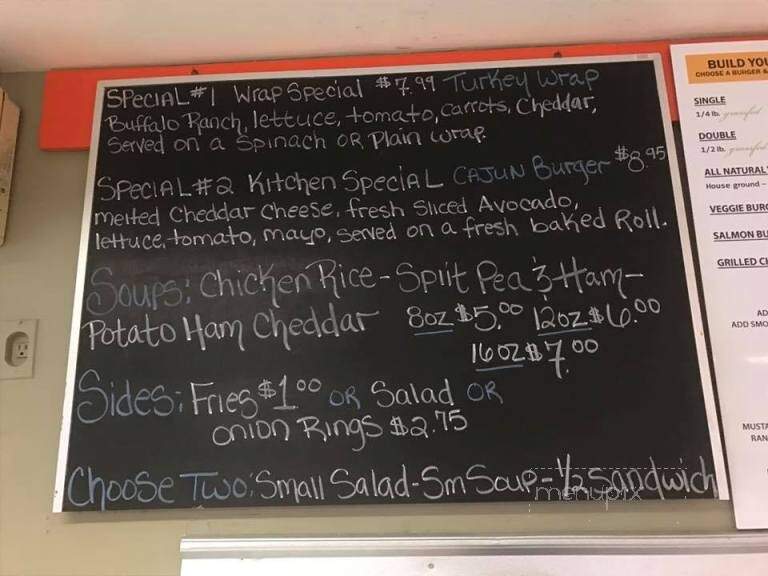 SPECIAL #1 Wrap Special $7.99 Turkey Wrap
Buffalo Ranch, lettuce, tomato, carrots, Cheddar,
Served on a Spinach OR Plain wrap.
SPECIAL #2 Kitchen Special CAJUN Burger $8.95
melted Cheddar Cheese, fresh Sliced Avocado,
lettuce, tomato, mayo, served on a fresh baked Roll.
Soups: Chicken Rice - Split Pea & Ham -
Potato Ham Cheddar 8oz $5.00 12oz $6.00
16oz $7.00
Sides: Fries $1.00 OR Salad OR
onion Rings $2.75
Choose Two: Small Salad - Sm Soup - 1/2 Sandwich
menupix
BUILD YOU
CHOOSE A BURGER &
SINGLE
1/4 lb. grassfed
DOUBLE
1/2 lb. grassfed
ALL NATURAL
House ground –
VEGGIE BURG
SALMON BU
GRILLED CH
AD
ADD SMO
MUSTA
RAN